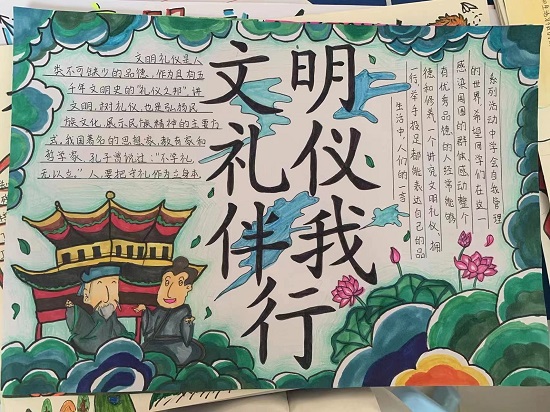 文明
礼仪
伴我
行
文明礼仪是人
类不可缺少的品德。作为具有五
千年文明史的“礼仪之邦”,讲
文明,树礼仪,也是弘扬民
族文化、展示民族精神的主要方
式,我国著名的思想家、教育家和
哲学家,孔子曾说过:“不学礼,
无以立。”人,要把守礼作为立身本
生活中,人们的一言
行,举手投足都能表达自己的品
德和修养,一个讲究文明礼仪,拥
有优秀品德的人经常能够
感染周围的群体感动整个
的世界,希望同学们在这一
系列活动中学会自我管理